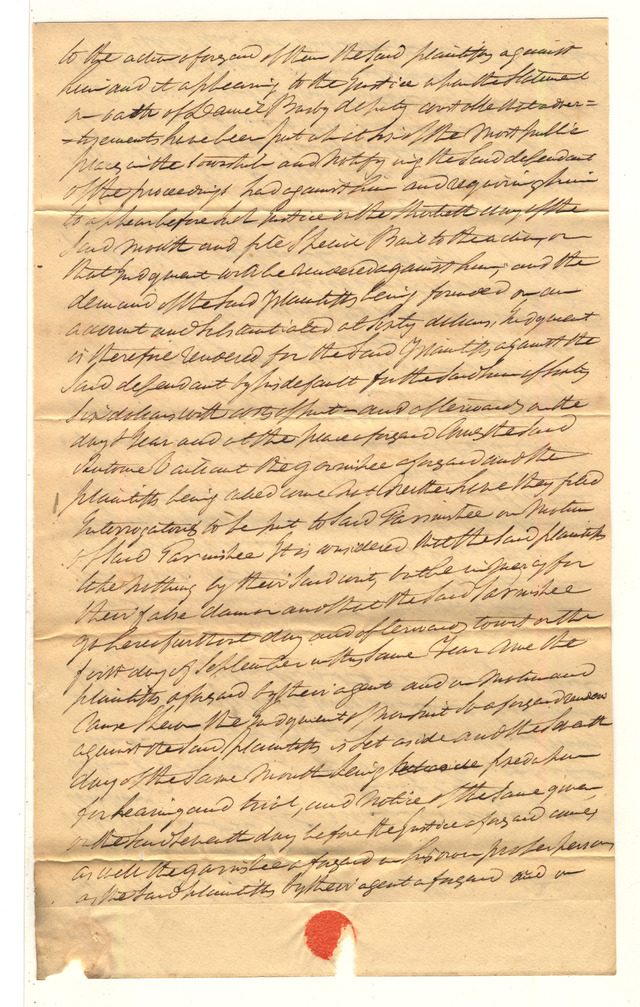 to the action aforesaid of them the said plaintiffs against
him and it appearing to the Justice upon the Statement
on oath of Daniel Busby deputy constable that adver=
=tisements have been put up at six of the most public
places in the township and notifying the said defendant
of the proceedings had against him and requiring him
to appear before sd Justice on the thirtieth day of the
said month and file Special Bail to the action, or
that Judgment will be rendered against him, and the
demand of the said Plaintiffs being founded on an
account and substantiated at sixty dollars, Judgment
is therefore rendered for the said Plaintiffs against the
said defendant by his default for the said sum of sixty
Six dollars with costs of suit - and afterwards on the
day & Year and at the place aforesaid Came the said
Antoine the garnishee aforesaid and the
plaintiffs being called come not neither have they filed
Interrogatories to be put to said Garnishee on Motion
of said Garnishee It is considered that the said plaintiffs
take nothing by their said writ, but be in mercy for
their false clamor and that the said Garnishee
go hereof without day and afterwards, to wit on the
first day of September in the same Year Came the
plaintiffs aforesaid by their agent and on motion and
Cause shewn the Judgment of Non Suit so aforesaid rendered
against the said plaintiffs is set aside and the seventh
day of the same Month being fixed upon
for hearing and trial, and notice of the same given
on the said Seventh day before the Justice aforesaid comes
as well the garnishee aforesaid in his own proper person
as the said plaintiffs by their agent aforesaid and on